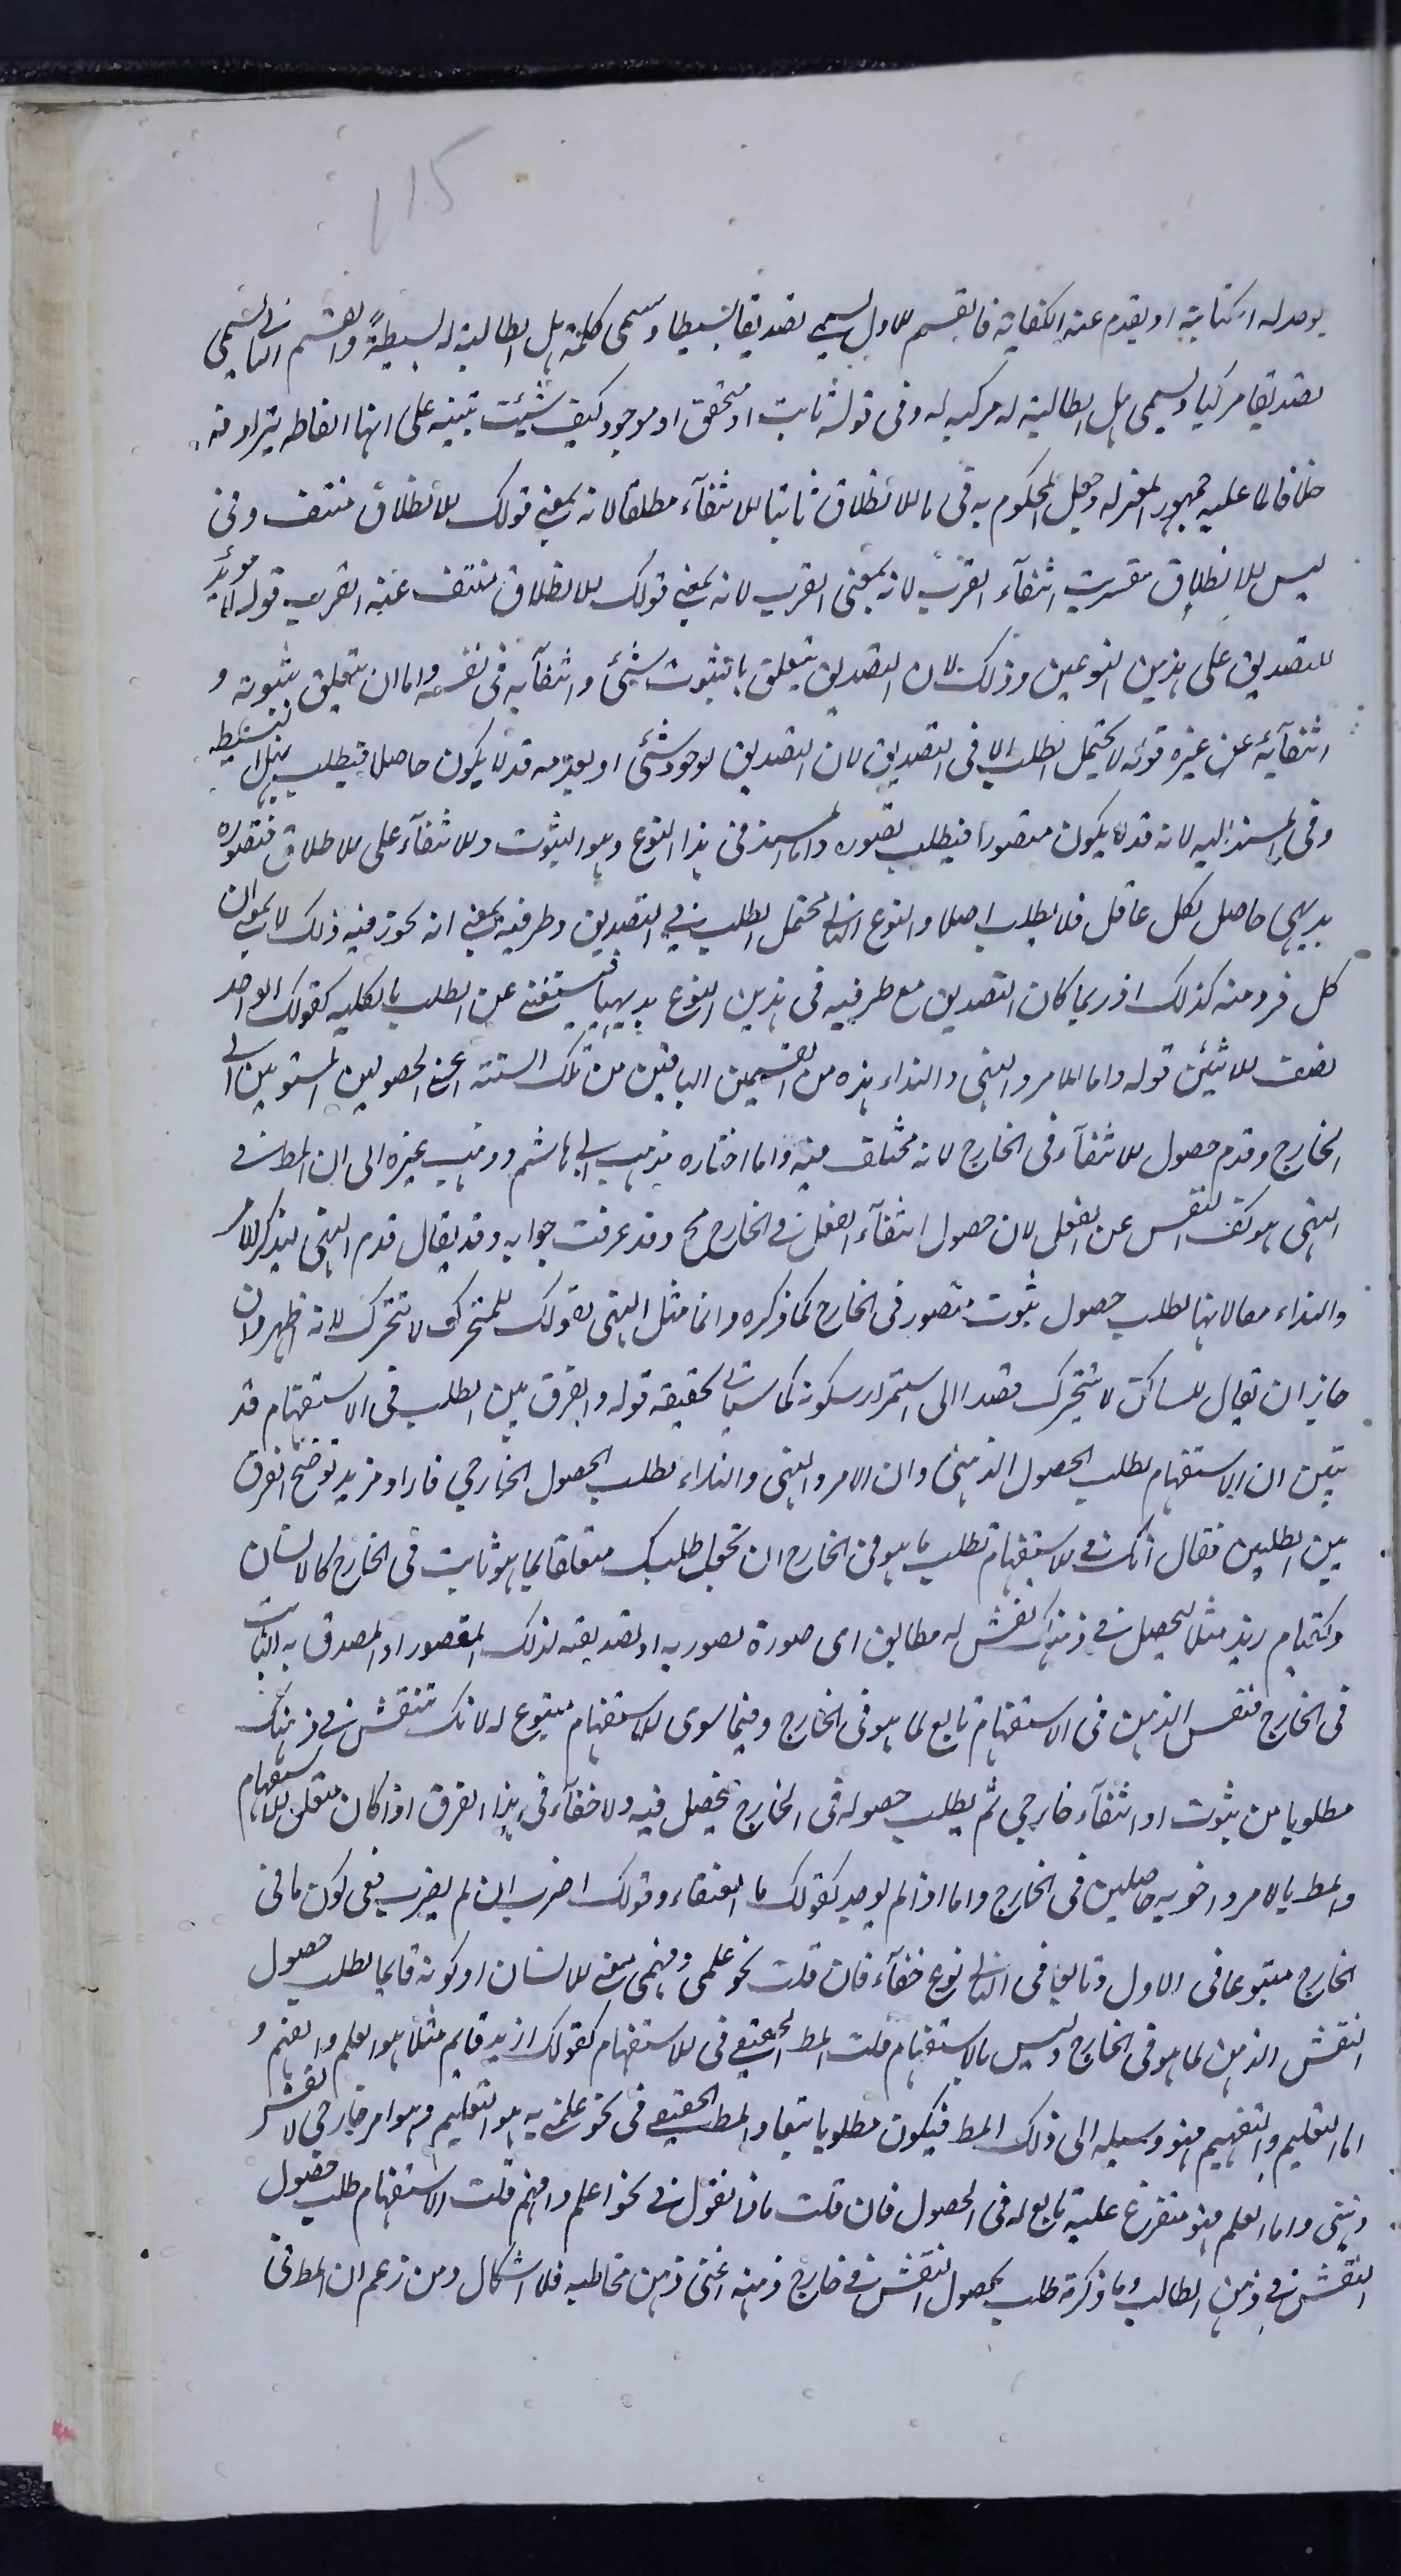 115
يوجد له الكتابة او يقدم عنه الكفاية فالقسم الاول يسمى تصديقا بسيطا ويسمى كلمة هل الطالبة له بسيطة والقسم الثانى يسمى
تصديقا مركبا ويسمى هل الطالبة له مركبه له وفى قوله ثابت او متحقق او موجود كيف شئت تنبيه على انها الفاظ مترادفة
خلافا لما عليه جمهور المعتزله وجعل المحكوم به فى ما الانطلاق ثابتا الانتفآء مطلقا لانه بمعنى قولك الانطلاق منتف وفى
ليس الانطلاق مقربت انتفآء القرب لانه بمعنى القرب لانه بمعنى قولك الانطلاق منتف عنه القرب قوله لا مزيد
للتصديق على هذين النوعين وذلك لان التصديق يتعلق بالثبوت شئ وانتفآيه فى نفسه واما ان يتعلق بثبوته و
انتفآئه عن غيره قوله لا يحتمل الطلب الا فى التصديق لان التصديق لوجود شئ او بعدمه قد لا يكون حاصلا فيطلب بهل البسيطه
وفى المسند اليه لانه قد لا يكون متصورا فيطلب تصوره واما المسند فى هذا النوع وهو الثبوت والانتفآء على الاطلاق فتصوره
بديهى حاصل لكل عاقل فلا يطلب اصلا والنوع الثانى يحتمل الطلب فى التصديق وطرفيه بمعنى انه يجوز فيه ذلك لا بمعنى ان
كل فرد منه كذلك اذ ربما كان التصديق مع طرفيه فى هذين النوع بديهيا فيستغنى عن الطلب بالكليه كقولك الواحد
نصف الاثنين قوله واما الامر والنهى والنداء هذه من القسمين الباقين من تلك الستة اعنى الحصولين المستويين الى
الخارج وقدم حصول الانتفآء فى الخارج لانه مختلف فيه واما اختاره مذهب ابى هاشم وذهب غيره الى ان المط فى
النهى هو كف النفس عن الفعل لان حصول انتفآء الفعل فى الخارج مح وقد عرفت جوابه وقد يقال قدم النهى ليذكر الامر
والنداء معا لانهما لطلب حصول ثبوت متصور فى الخارج كما ذكره وانما مثل النهى بقولك للمتحرك لا تتحرك لانه اظهر وان
جاز ان يقال للساكن لا تتحرك قصدا الى استمرار سكونه كما سياتى تحقيقه قوله والفرق بين الطلب فى الاستفهام قد
تبين ان الاستفهام لطلب الحصول الذهنى وان الامر والنهى والنداء لطلب الحصول الخارجى فاراد مزيد توضيح الفرق
بين الطلبين فقال انك فى الاستفهام تطلب ما هو فى الخارج ان تجعل طلبك متعلقا لما هو ثابت فى الخارج كالانسان
وكقيام زيد مثلا ليحصل فى ذهنك نقش له مطابق اى صورة تصوريه او تصديقيه لذلك المتصور او المصدق به الثابت
فى الخارج فنقس الذهن فى الاستفهام تابع لما هو فى الخارج وفيما سوى الاستفهام متبوع له لانك تنقش فى ذهنك
مطلوبا من ثبوت او انتفآء خارجى ثم يطلب حصوله فى الخارج يحصل فيه ولا خفآء فى هذا الفرق اذا كان متعلق الاستفهام
والمط بالامر واخويه حاصلين فى الخارج واما اذا لم يوجد كقولك ما العنقاء وقولك اضرب ان لم يضرب ففى كون ما فى
الخارج متبوعا فى الاول وتابعا فى الثانى نوع خفآء فان قلت نحو علمنى وفهمنى معنى الانسان او كونه قايما لطلب حصول
النقش الذهن لما هو فى الخارج وليس بالاستفهام قلت المط الحقيقى فى الاستفهام كقولك ازيد قايم مثلا هو العلم والفهم و
اما التعليم والتفهيم فهو وسيله الى ذلك المط فيكون مطلوبا تبعا والمط الحقيقى فى نحو علمنيه هو التعليم وهو امر خارجى لا نقش
ذهنى واما العلم فهو متفرع عليه تابع له فى الحصول فان قلت ماذا نقول فى نحو اعلم وافهم قلت الاستفهام طلب حصول
النقش فى ذهن الطالب وما ذكرته طلب لحصول النقش فى خارج ذهنه اعنى ذهن مخاطبه فلا اشكال ومن زعم ان المط فى